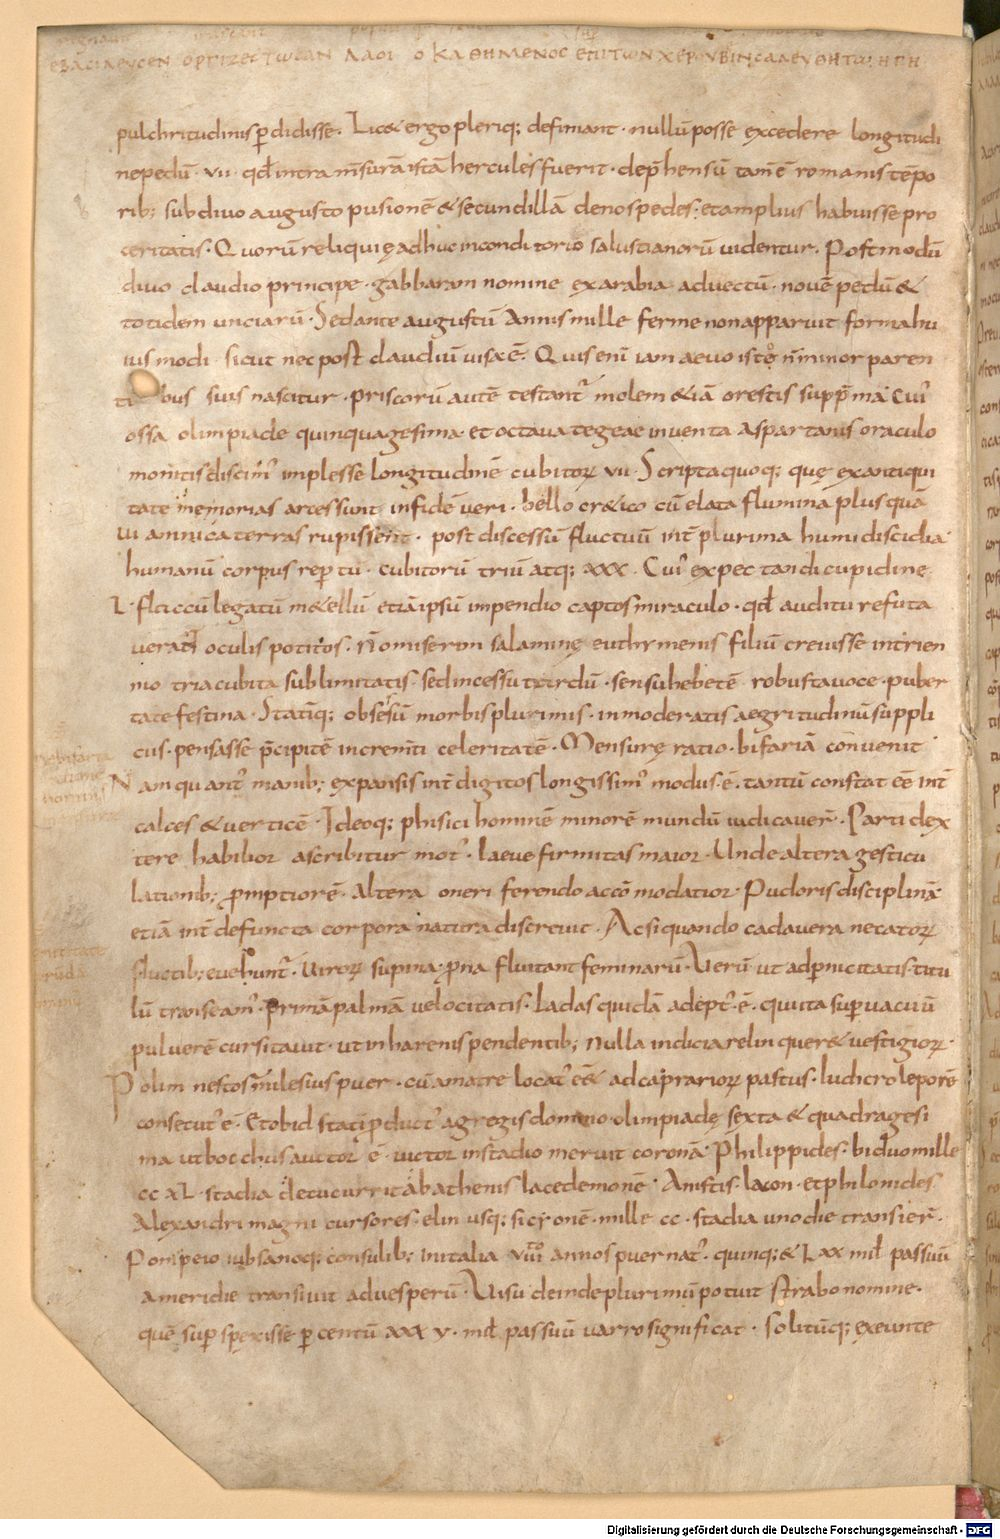 ΕΒΑCΙΛΕΥCΕΝ ΟΡΓΙΖΕCΤѠCΑΝ ΛΑΟΙ Ο ΚΑΘΗΜΕΝΟC ΕΠΙ ΤѠΝ ΧΕΡΟΥΒΙΝ CΑΛΕΥΘΗΤѠ Η ΓΗ
pulchritudinis ꝑdidisse. Lic& ergo pleriq; definiant · nullū posse excedere longitudi
ne pedū · vii · qd̄ intra m̄surā istā hercules fuerit · dep̄hensū tam̄ ē romanis tēpo
rib; sub divo augusto pusionē & secundillā denos pedes; et amplius habuisse pro
ceritatis. Quorū reliquię adhuc in conditorio salustianorū uidentur. Postmodū
divo claudio principe · gabbaram nomine ex arabia advectū · novē pedū &
totidem unciarū · Sed ante augustū Annis mille ferme non apparuit forma hu
ius modi · sicut nec post claudiū visa ē. Quis eni iam aevo isto n̄ minor paren
tibus suis nascitur · priscorū autē testant᷑ molem &iā orestis supp̄ma Cui᷒
ossa olimpiade quinquagesima · et octava tegeae inventa Aspartanis oraculo
monitis discim᷒ implesse longitudinē cubitoꝝ vii · Scripta quoq; quę ex antiqui
tate memorias artessunt in fidē veri · bello cr&ico cū elata flumina plus quā
vi amnica terras rupissent · post discessū fluctuū int̄ plurima humi discidia
humanū corpus reꝑtū · cubitorū triū atq; xxx · Cui᷒ expectandi cupidine
L · flaccū legatū m&ellū etiā ipsū impendio captos miraculo · qd̄ auditu refuta
verant oculis potitos · Nomiserim salaminę euthymenis filiū crevisse in trien
nio tria cubita sublimitatis · sed incessu tardū · sensu hebetē robusta voce · puber
tate festina · Statīq; obsesū morbis plurimis · inmoderatis aegritudinū suppli
ciis · pensasse p̄cipitē incrementi celeritatē · Mensurę ratio · bifariā convenit
Nam quant᷒ manib; expansis int̄ digitos longissim᷒ modus · ē · tantū constat ēē int̄
calces & verticē · Ideoq; phisici hominē minorē mundū iudicaver̄ · Parti dex
tere habilior ascribitur mot᷒ · laeve firmitas maior · Unde altera gesticu
lationib; ꝓmptiorē · Altera oneri ferendo accōmodatior · Pudoris disciplinā
etiā int̄ defuncta corpora natura discrevit · Ac si quando cadavera necatoꝝ
fluctib; evehunt᷑ · Viroꝝ supina · ꝓna fluitant feminarū · Verū ut ad ꝑnicitatis titu
lū transeam᷒ · primā palmā velocitatis · ladas quidā adept᷒ · ē · qui ita suꝑ vacuū
pulverē cursitavit · ut in harenis pendentib; nulla indicia relinquer& vestigioꝝ ·
Polimnestos milesius puer · cū a matre locat᷒ ēē& ad caprarioꝝ pastus · ludicro leporē
consecut᷒ ē · Et ob id statī ꝓduct᷒ a gregis domino olimpiadę sexta & quadragesi
ma ut bocchus auctor ē · victor in stadio meruit coronā · Philippides · biduo mille
cc xL · stadia decucurrit ab athenis lacedemonē · Anistis · lacon · et philonides
Alexandri magni cursores · elin usq; sicyonē · mille cc · stadia uno die transier̄ ·
Pompeio iubsanoq; consulib; in italia viii annos puer nat᷒ · quinq; & Lxx mil passuū
a meridie transivit ad vesperū · Visu deinde plurimū potuit strabo nomine ·
quē suꝑspexisse ꝑ centū xxx v · mil passuū varro significat · solitūq; exeunte